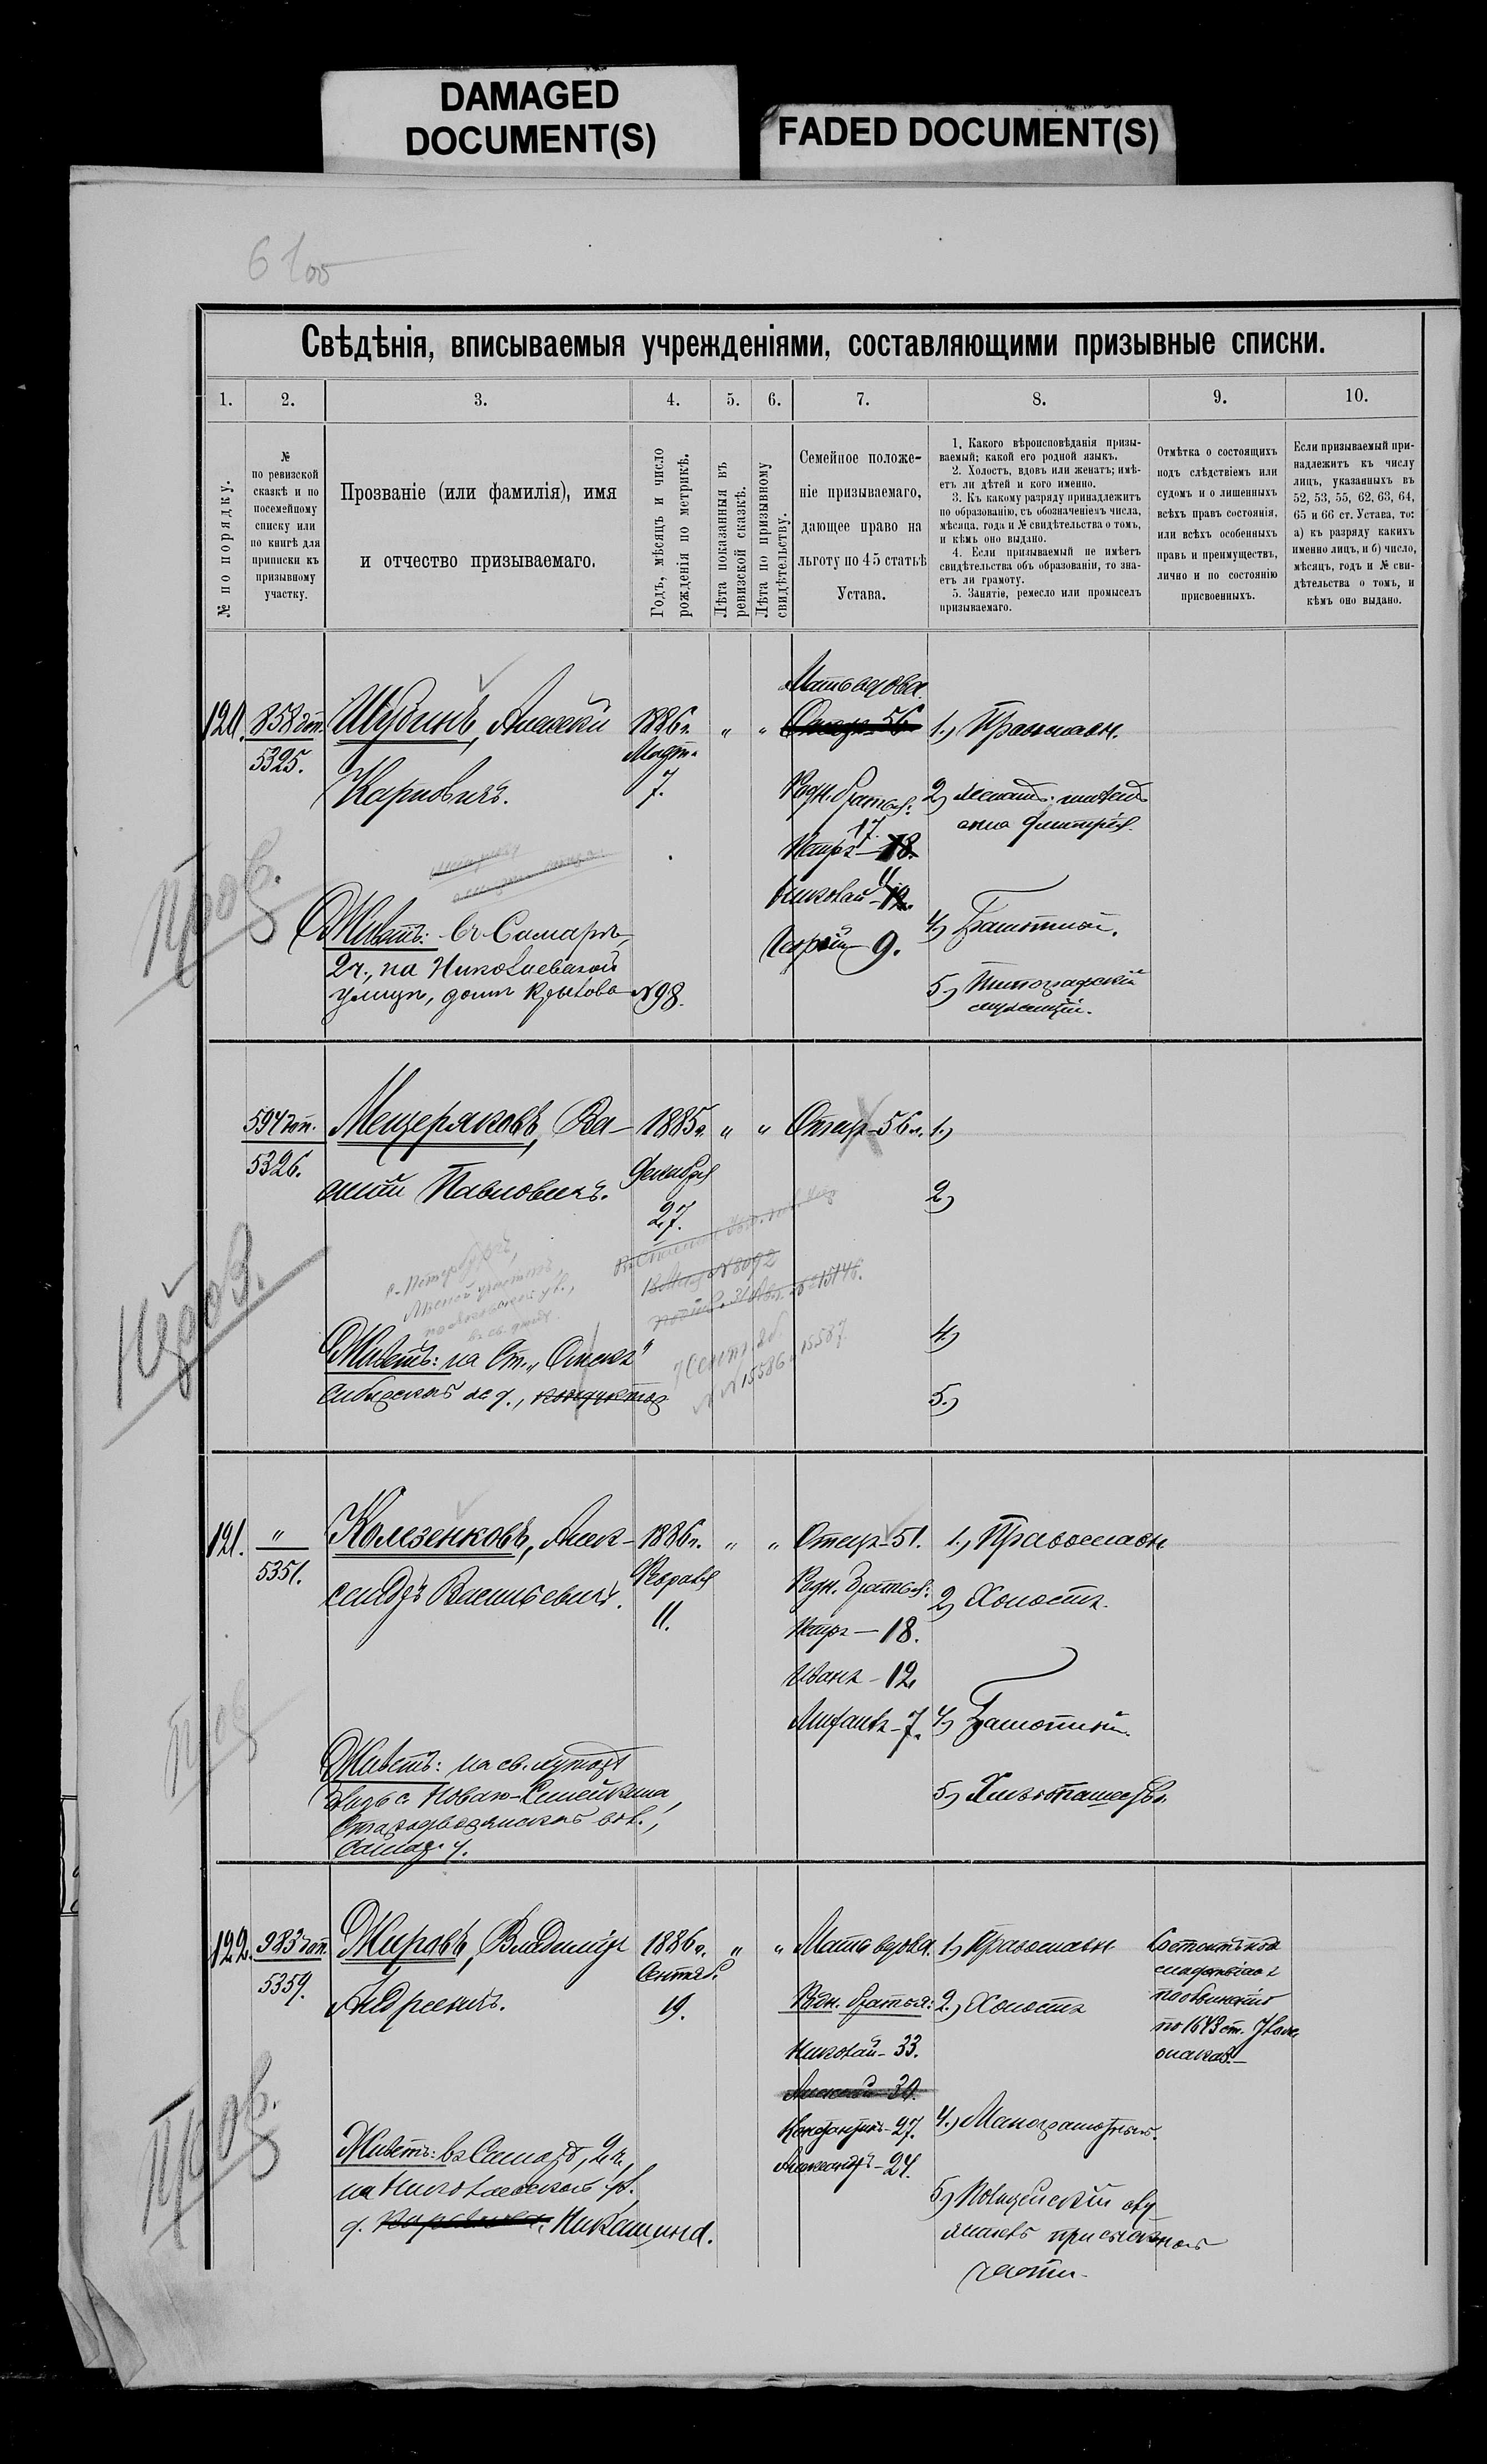 DAMAGED
DOCUMENT(S)
FADED DOCUMENT(S)
Свѣдѣнія, вписываемыя учрежденіями, составляющими призывные списки.
1. 2. 3. 4. 5. 6. 7. 8. 9. 10.
№ по порядку.
№
по ревизской
сказкѣ и по
посемейному
списку или
по книгѣ для
приписки къ
призывному
участку.
Прозваніе (или фамилія), имя
и отчество призываемаго.
Годъ, мѣсяцъ и число
рожденія по метрикѣ.
Лѣта показанныя въ
ревизской сказкѣ.
Лѣта по призывному
свидѣтельству.
Семейное положе-
ніе призываемаго,
дающее право на
льготу по 45 статьѣ
Устава.
1. Какого вѣроисповѣданія призы-
ваемый; какой его родной языкъ.
2. Холостъ, вдовъ или женатъ; имѣ-
етъ ли дѣтей и кого именно.
3. Къ какому разряду принадлежитъ
по образованію, съ обозначеніемъ числа,
мѣсяца, года и № свидѣтельства о томъ,
и кѣмъ оно выдано.
4. Если призываемый не имѣетъ
свидѣтельства объ образованіи, то зна-
етъ ли грамоту.
5. Занятіе, ремесло или промыселъ
призываемаго.
Отмѣтка о состоящихъ
подъ слѣдствіемъ или
судомъ и о лишенныхъ
всѣхъ правъ состоянія,
или всѣхъ особенныхъ
правъ и преимуществъ,
лично и по состоянію
присвоенныхъ.
Если призываемый при-
надлежитъ къ числу
лицъ, указанныхъ въ
52, 53, 55, 62, 63, 64,
65 и 66 ст. Устава, то:
а) къ разряду какихъ
именно лицъ, и б) число,
мѣсяцъ, годъ и № сви-
дѣтельства о томъ, и
кѣмъ оно выдано.
120. 858 доп. Шубинъ, Алексѣй 1886 г. " "
5325.
Карповичъ.
Март.
7.
Мать вдова.
Отцу 56
Родн. братья:
Петръ — 18. 17.
Николай — 12. 11
Сергѣй 9.
1.) Православн.
2) женатъ:
4) Грамотный.
5) Типографскій
служащій.
Пров.
Живетъ: въ Самарѣ,
2 ч., на Николаевской
улицѣ, домъ Крылова № 98.
594 доп. Мещеряковъ, Ва- 1885 г. " " Отцу 56 л. 1.)
5326.
силій Павловичъ.
Декабря
27.
2)
4)
5.)
Живетъ: на Ст. "Омскъ"
Сибирской ж. д., кондуктор
NN 15586 15587
121. " Колезенковъ, Алек- 1886 г. " " Отцу 51. 1.) Православн
5351.
сандръ Васильевичъ.
Февраля
11.
Родн. братья:
Петръ — 18.
Иванъ — 12
2) Холостъ.
4) Грамотный.
5) Хлѣбопашество.
Пров
Живетъ: на св. хуторѣ
Самар. у.
122. 983 доп. Жировъ, Владиміръ 1886 г. " " Мать вдова. 1.) Православн
5359.
Андреевичъ.
Сентяб.
19.
Родн. братья:
Николай — 33.
Алексѣй 30.
Константинъ — 27.
Александръ — 24.
2.) Холостъ
4.) Малограмотный.
5) Полицейскій слу
части.
Состоитъ под
слѣдствіемъ
по обвиненію
по 1643 ст. Улож.
о наказ.
Пров.
Живетъ: въ Самарѣ, 2 ч.,
на Николаевской ул.
д. Никашина.